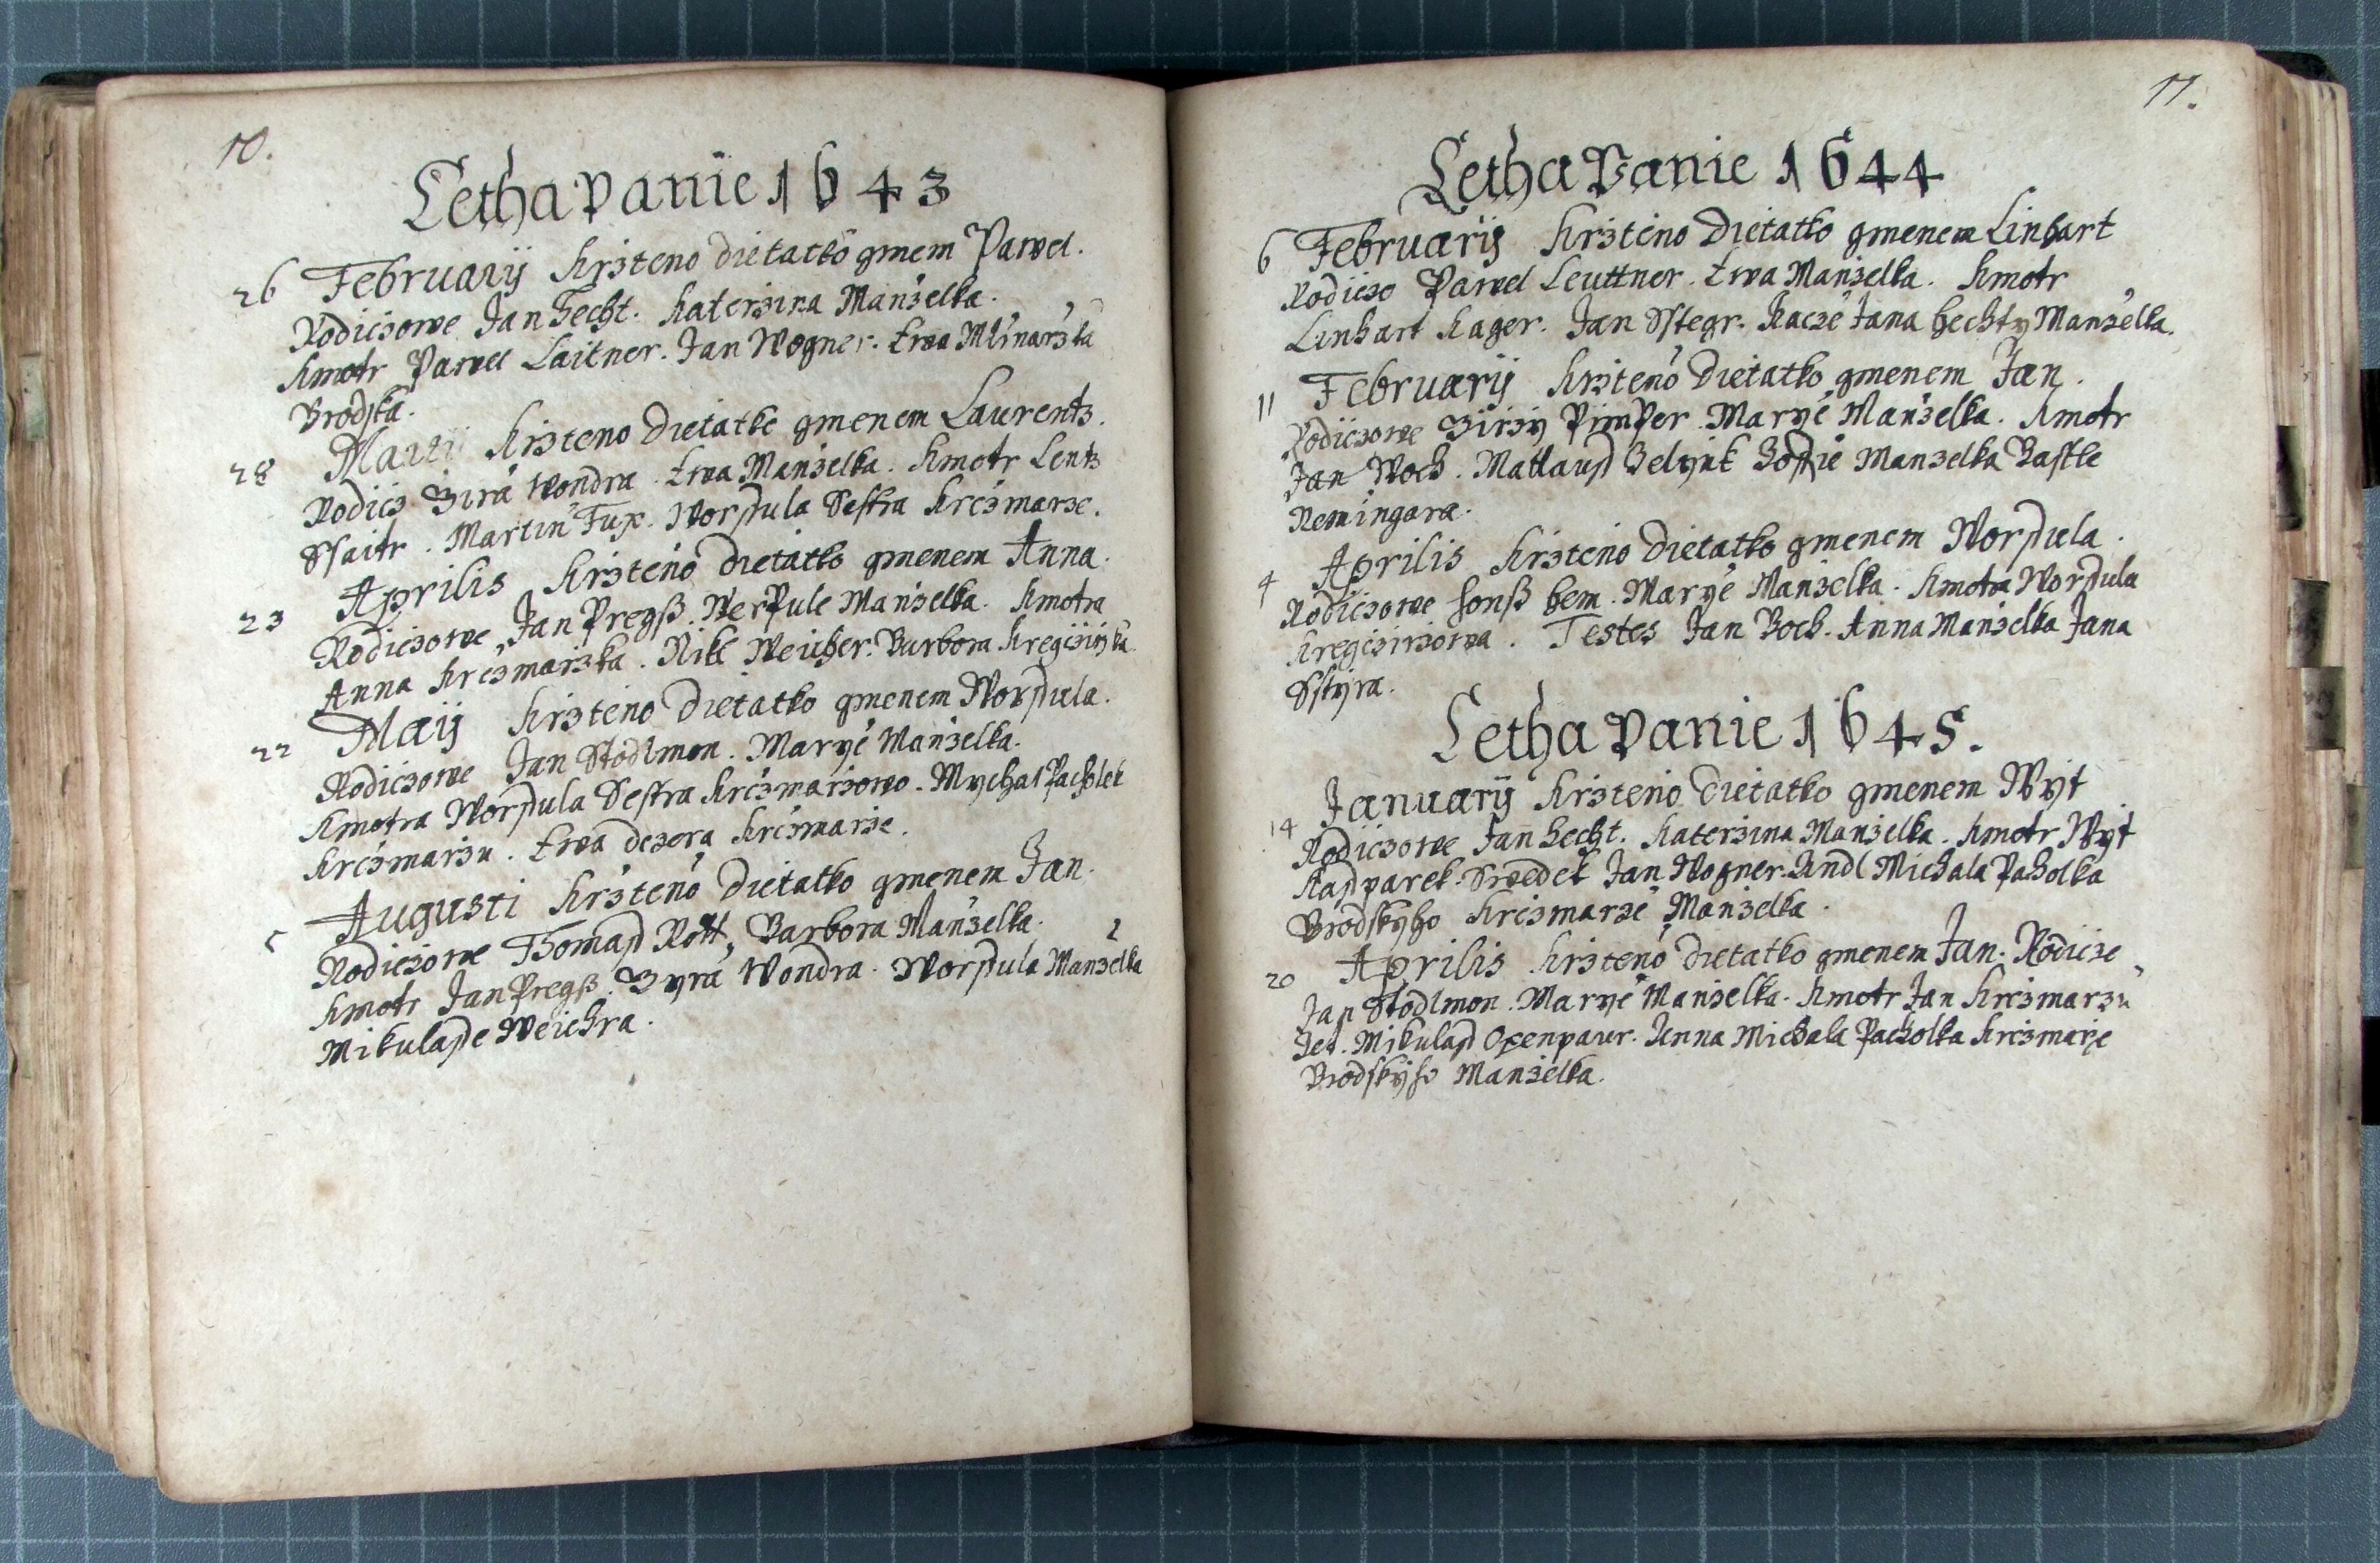 10.
Letha Panie 1643
26 Februarij Krzteno Dietatko gmem Pawel.
Rodiczowe Jan Hecht. Katerzina Manzelka.
Kmotr Pawel Laitner. Jan Wogner. Ewa Mlinarzka
Brodska.
28 Martij Krzteno Dietatke gmenem Laurentz.
Rodicz Zira Wondra. Ewa Manzelka. Kmotr Lentz
Ssaitr. Martin Fux. Worssula Sestra Krczmarze.
23 Aprilis Krzteno Dietatko gmenem Anna.
Rodiczowe Jan Pregß. Manzelka. Kmotra
Anna Krczmarzka. Nikl Weicher. Barbora
22 Maij Krzteno Dietatko gmenem Worssula.
Rodiczowe Jan Stodlmon. Maryé Manzelka.
Kmotra Worssula Sestra Krczmarzowo. Mychal Pacholek
Krczmarzu. Ewa dczera Krczmarze.
5 Augusti Krzteno Dietatko gmenem Jan.
Rodiczowe Thomass Rott, Barbora Manzelka.
Kmotr Jan Pregß. Zyra Wondra. Worssula Manzelka
Mikulasse Weichra.
11.
Letha Panie 1644
6 Februarij Krzteno Dietatko gmenem Linhart
Rodiczo Pawel Leuttner. Ewa Manzelka. Kmotr
Linhart Kager. Jan Sstegr. Kacze Jana Hechty Manzelka.
11 Februarij Krzteno Dietatko gmenem Jan.
Rodiczowe Zirzy Pimper. Maryé Manzelka. Kmotr
Jan Woch. Mattaus Zofie Manzelka Bastle
Nemingara.
4 Aprilis Krzteno Dietatko gmenem Worssula.
Rodiczowe Honß bem. Maryé Manzelka. Kmotra Worssula
Kregczirzowa. Testes Jan Boch. Anna Manzelka Jana
Sstyra.
Letha Panie 1645.
14 Januarij Krzteno Dietatko gmenem Wyt
Rodiczowe Jan Hecht. Katerzina Manzelka. Kmotr Wyt
Kassparek. Swedek Jan Wogner. Andl Michala Paholka
Brodskyho Krczmarze Manzelka.
20 Aprilis Krzteno Dietatko gmenem Jan. Rodicze
Jan Stodlmon. Maryé Manzelka. Kmotr Jan Krczmarzu
Zet. Mikulass Oxenpaur. Anna Michala Pacholka Krczmarze
Brodskyho Manzelka.